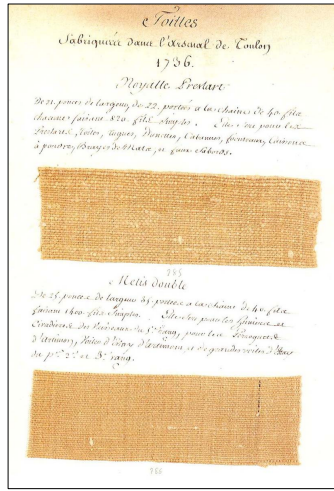 Toilles
Fabriquées dans l'Arsenal de Toulon
1736.
Noyalle Prelart
De 21. pouces de largeur, de 22. portées a la chaine de 40. fils
chacune faisant 820. fils simples. Elle sert pour les
Prelarts, Toiles, Tugues,
a poudre, Brayes de Mats, et faux Etambords.
785
Melis double
De 25. pouces de largeur 35. portées a la chaine de 40. fils
faisant 1400. fils simples. Elle sert pour les Misaines et
Civadieres des Vaisseaux du 5.e rang, pour les Perroquets
d'artimon, Voiles d'Etay d'artimon, et de grandes voiles d'Etay
du p.er 2.e et 3.e rang.
786